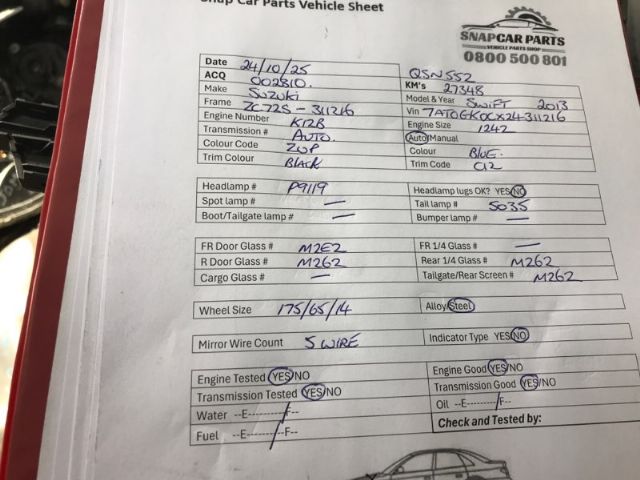 Snap Car Parts Vehicle Sheet
SNAPCAR PARTS
VEHICLE PARTS SHOP
0800 500 801
Date 24/10/25 QSN552
ACQ 002810. KM's 27348
Make SUZUKI Model & Year SWIFT 2013
Frame ZC72S - 311216 Vin 7AT0GK0CX24311216
Engine Number K12B Engine Size 1242
Transmission # AUTO. Auto/Manual
Colour Code ZUP Colour BLUE.
Trim Colour BLACK Trim Code C12
Headlamp # P9119 Headlamp lugs OK? YES/NO
Spot lamp # — Tail lamp # 5035
Boot/Tailgate lamp # — Bumper lamp # —
FR Door Glass # M2E2 FR 1/4 Glass # —
R Door Glass # M262 Rear 1/4 Glass # M262
Cargo Glass # — Tailgate/Rear Screen # M262
Wheel Size 175/65/14 Alloy/Steel
Mirror Wire Count 5 WIRE Indicator Type YES/NO
Engine Tested YES/NO Engine Good YES/NO
Transmission Tested YES/NO Transmission Good YES/NO
Water --E----------/F-- Oil --E---------/F--
Fuel --E-------/--F-- Check and Tested by: